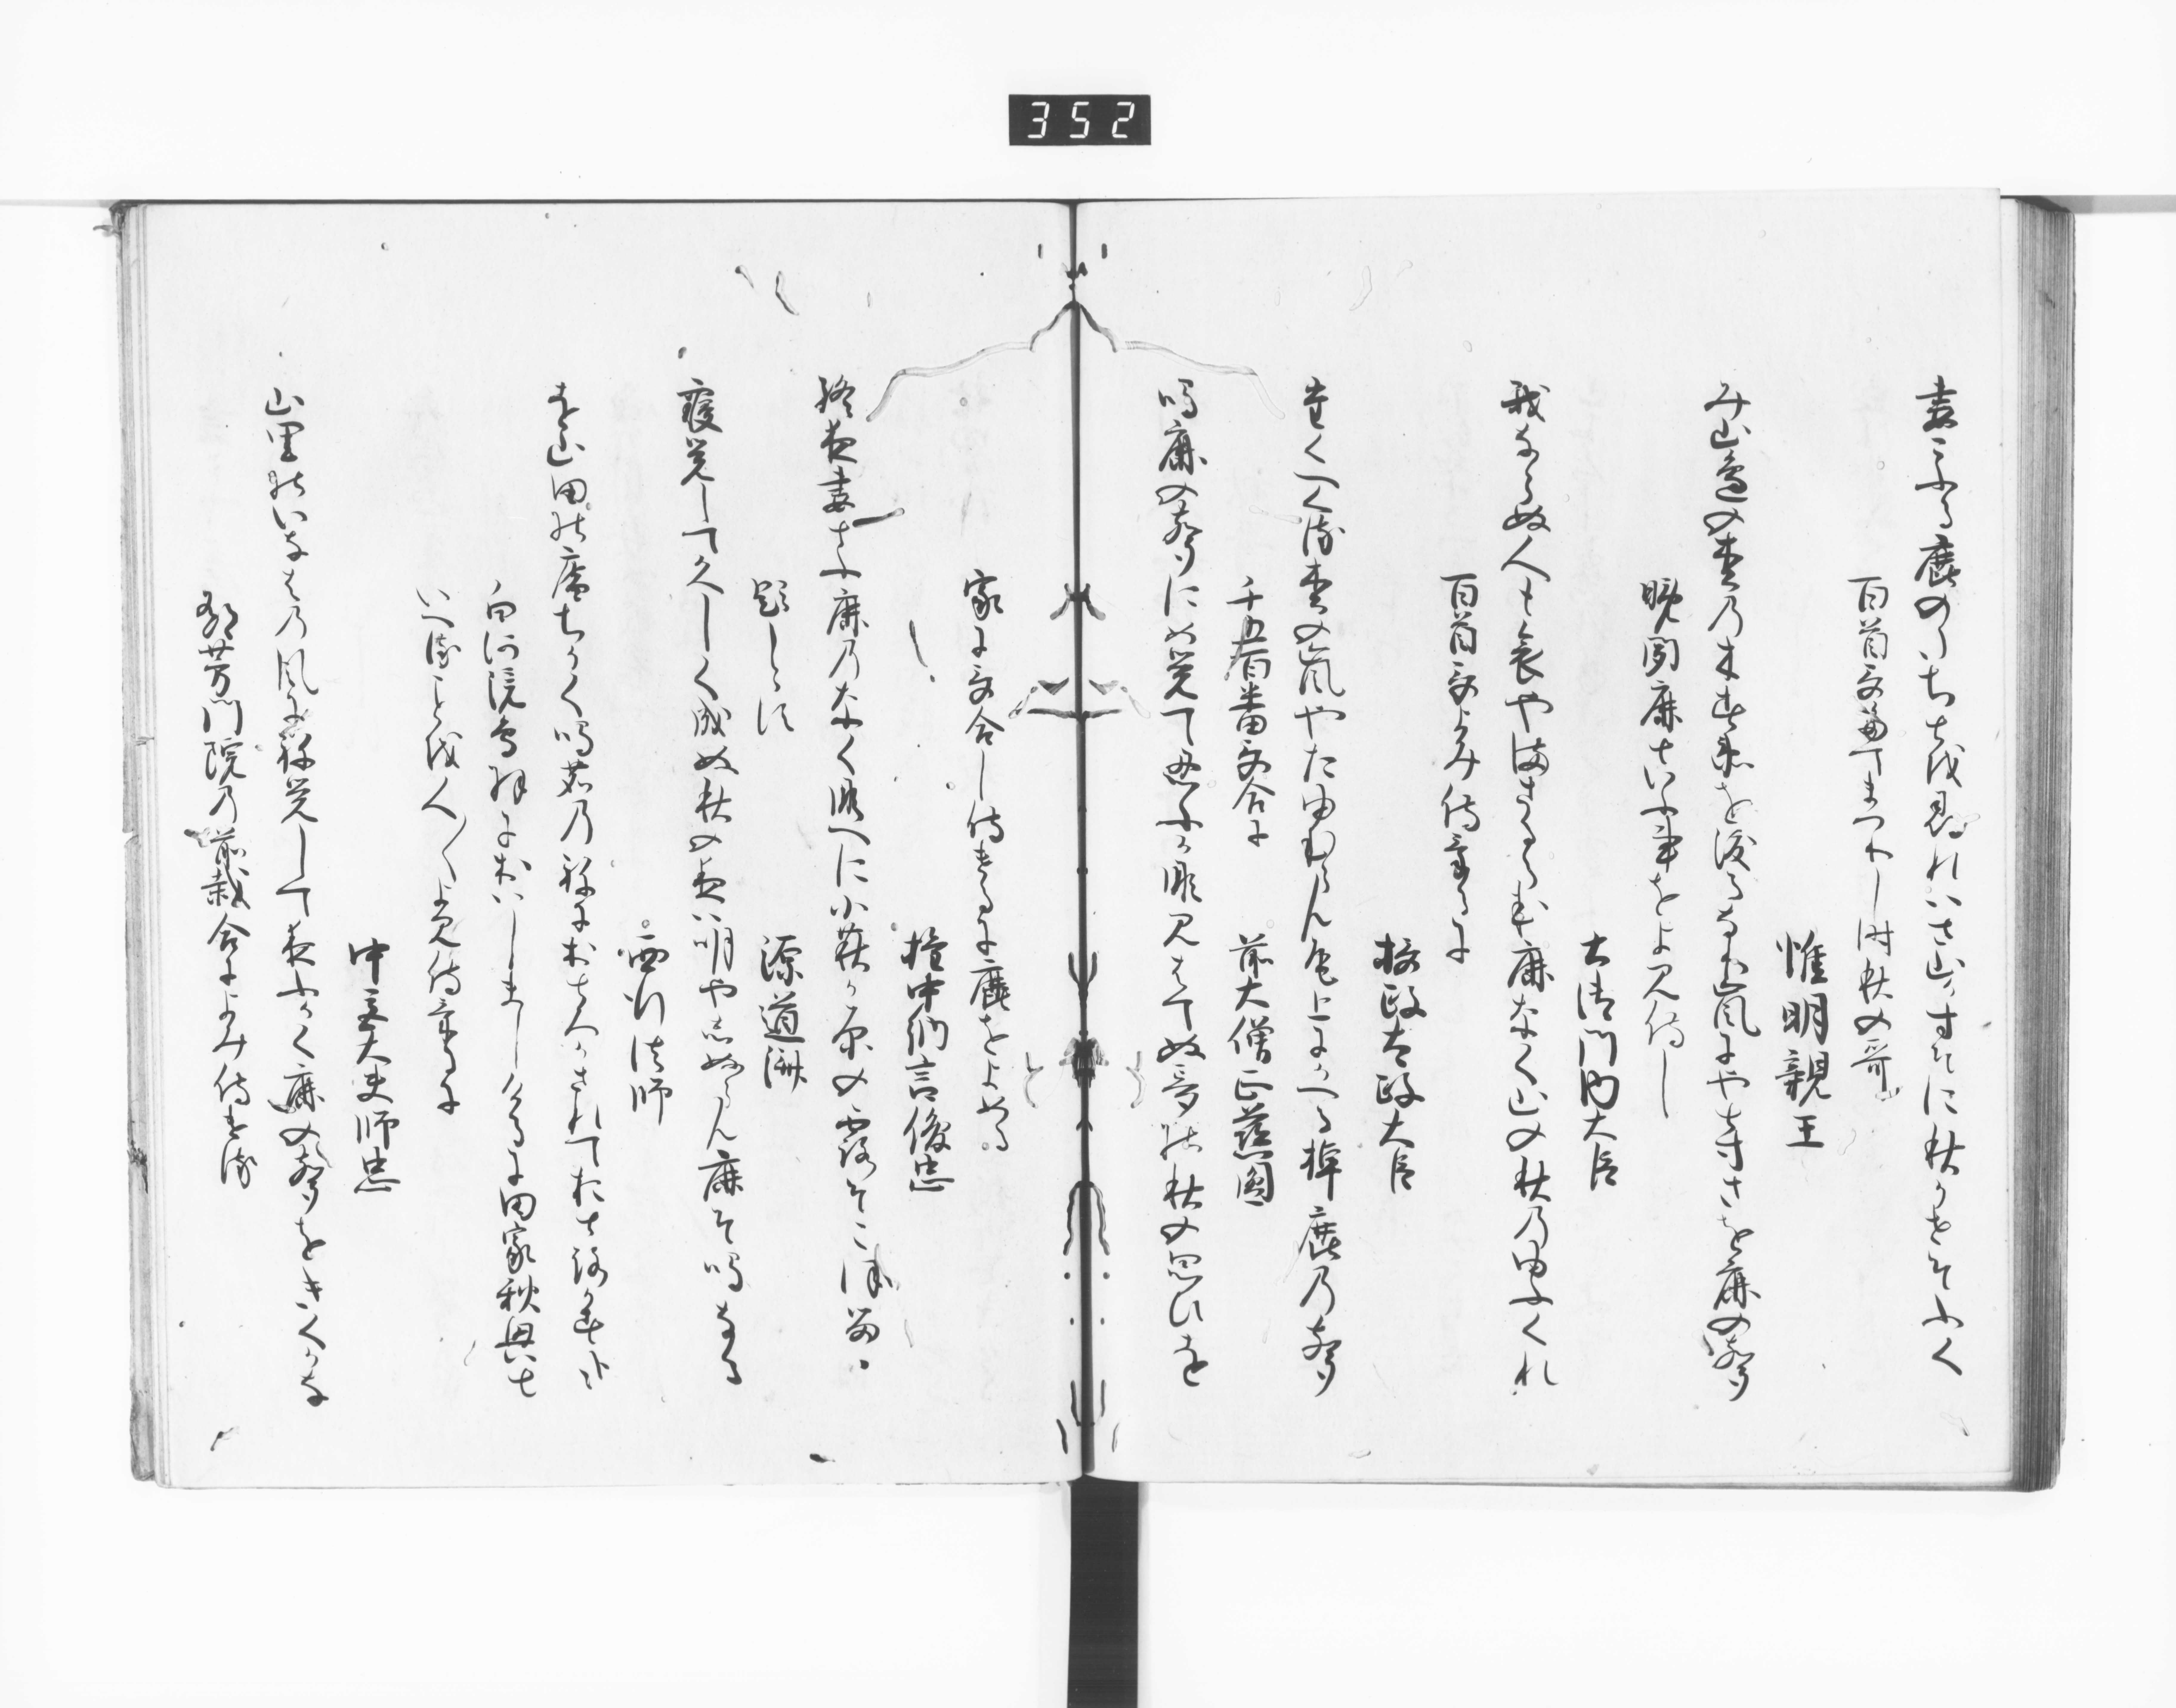 352
妻こふる鹿のたちとを尋れはさ山かすそに秋かせそふく
百首哥奉てまつりし時秋の哥
惟明親王
み山邊の松の木すゑを渡るなり嵐にやとすさを鹿の聲
晩聞鹿といふ事をよみ侍し
土御門内大臣
我ならぬ人も哀やまさるらむ鹿なく山の秋の夕くれ
百首哥よみ侍けるに
攝政太政大臣
たくへくる松の嵐やたゆむらん尾上にかへる棹鹿の聲
千五百番哥合に　前大僧正慈圓
鳴鹿の聲にめ覚て忍ふ哉見はてぬ夢の秋の思ひを
家に哥合し侍けるに鹿をよめる
權中納言俊忠
終夜妻とふ鹿の なく眼へに小萩か原の露そこほるゝ
題しらす
源道濟
寝覚して久しく成ぬ秋の夜は明やしぬらん鹿そ鳴なる
西行法師
を山田の庵ちかく鳴鹿の ねにおとろかされておとろかすかな
白河院鳥羽におはしましけるに田家秋興と
いへることを人〱よみ侍けるに
中宮大夫師忠
山里のいなはの風にね覚して夜ふかく鹿の聲をきくかな
郁芳門院の前栽合によみ侍ける